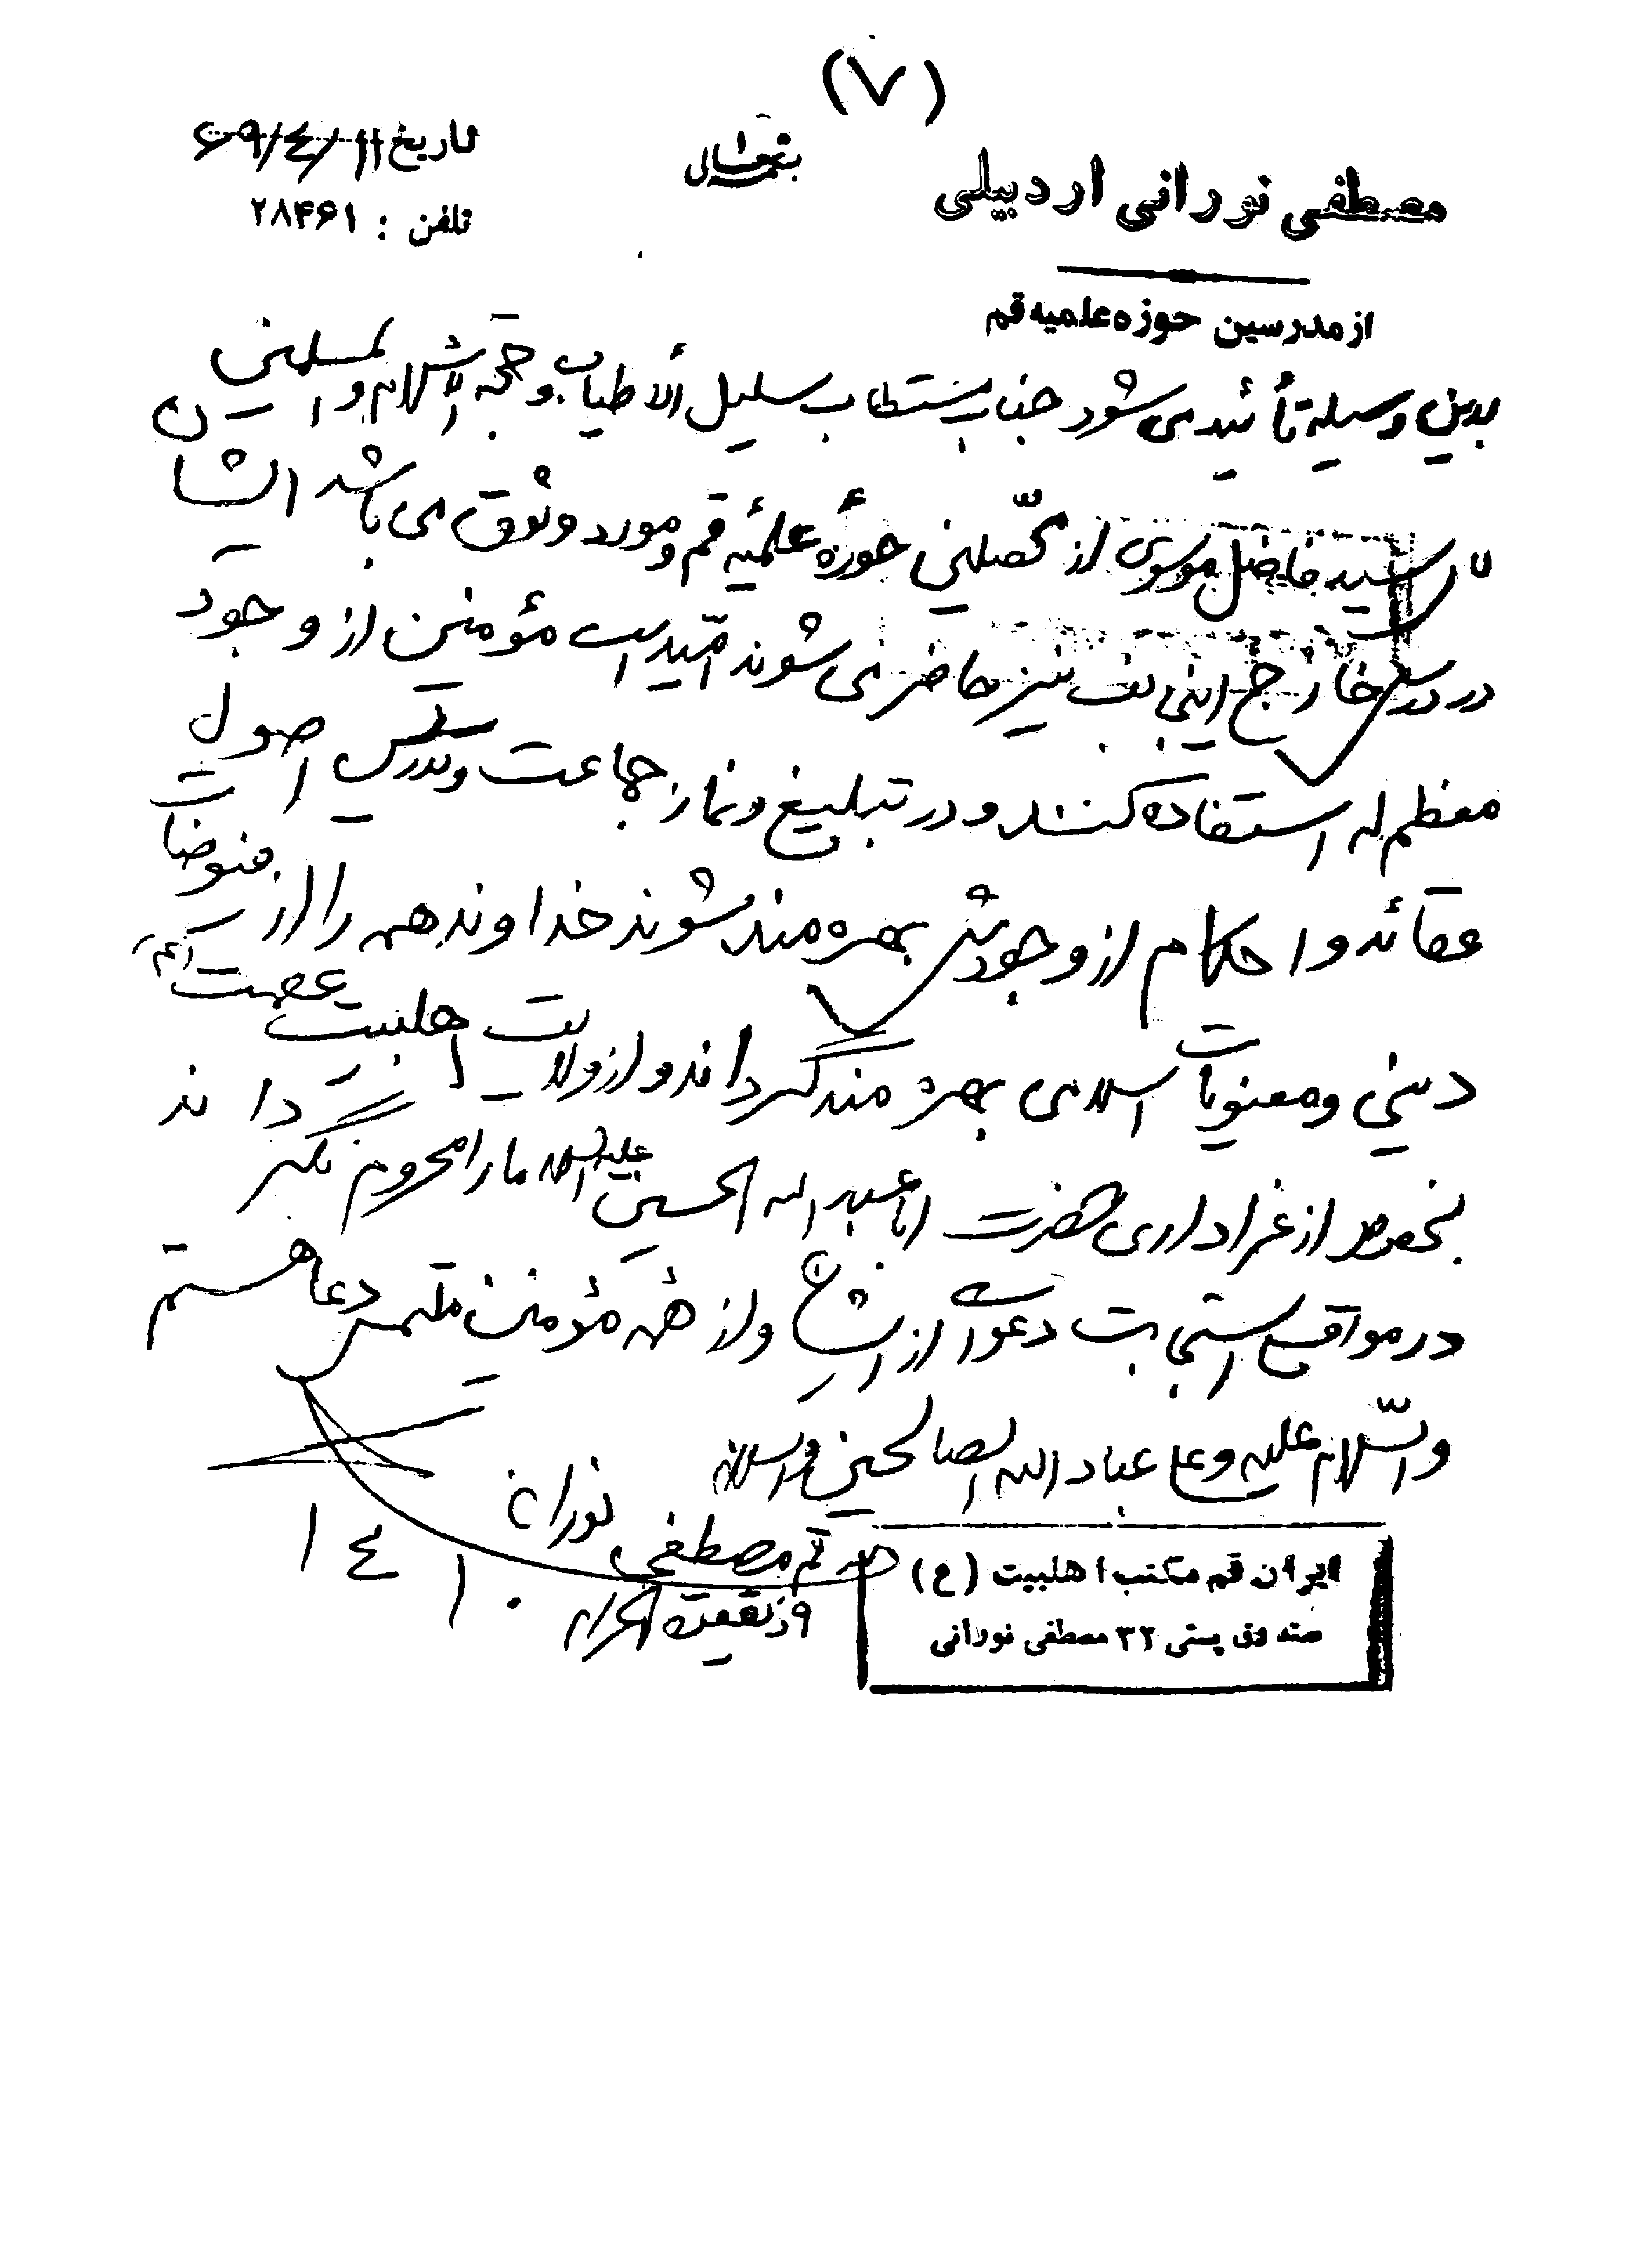 (۷)
بسمه تعالی
تاریخ ۶۹/۴/۱۱
تلفن : ۲۸۴۶۱
مصطفی نورانی اردبیلی
از مدرسین حوزه علمیه قم
بدین وسیله تأئید می شود جناب مستطاب سلیل الأطیاب و حجة الاسلام و المسلمین
سید فاضل موسوی از محصلین حوزهٔ علمیه قم و مورد وثوق می باشد ایشان
در درس خارج اینجانب نیز حاضر می شوند امید است مؤمنین از وجود
معظم له استفاده کنند و در تبلیغ و نماز جماعت و تدریس اصول
عقائد و احکام از وجودش بهره مند شوند خداوند همه را از فیوضات
دینی و معنویات اسلامی بهره مند گرداند و از ولایت اهلبیت عصمت
بخصوص از عزاداری حضرت ابا عبدالله الحسین علیه السلام ما را محروم نگرداند
در مواقع استجابت دعوات از ایشان و از همه مؤمنین ملتمس دعا هستم
والسّلام علیه و علی عباد الله الصالحین والسلام
قم مصطفی نورانی
۹ ذیقعدة الحرام ۱۴۱۰
ایران قم مکتب اهلبیت (ع)
صندوق پستی ۳۲ مصطفی نورانی